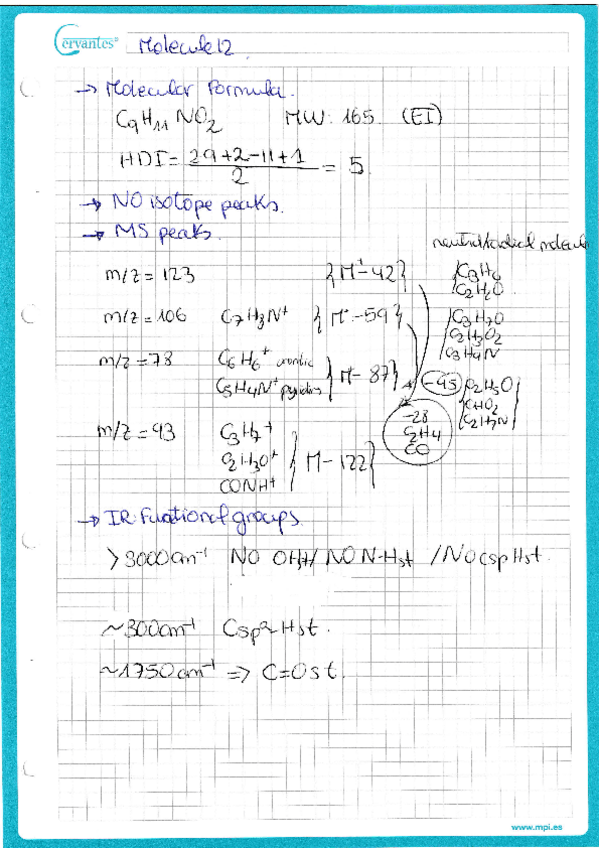 Cervantes® Molecule 12
→ Molecular Formula.
C9H11NO2 MW: 165. (EI)
HDI = 29+2-11+1 / 2 = 5.
→ NO isotope peaks.
→ MS peaks.
neutral/radical molecule
m/z = 123 {M+-42} C3H6
C2H2O
m/z = 106 C7H8N+ {M+-59} C3H7O
C2H3O2
C3H9N
m/z = 78 C6H6+ aromatic
C5H4N+ pyridines } M-87 } -45 C2H5O
CHO2
C2H7N
-28
C2H4
CO
m/z = 43 C3H7+
C2H3O+ { M-122 }
CONH+
→ IR: Functional groups.
>3000cm-1 NO OHst / NO N-Hst / NO Csp Hst.
~300cm-1 Csp2-Hst.
~1750cm-1 ⇒ C=O st.
www.mpi.es